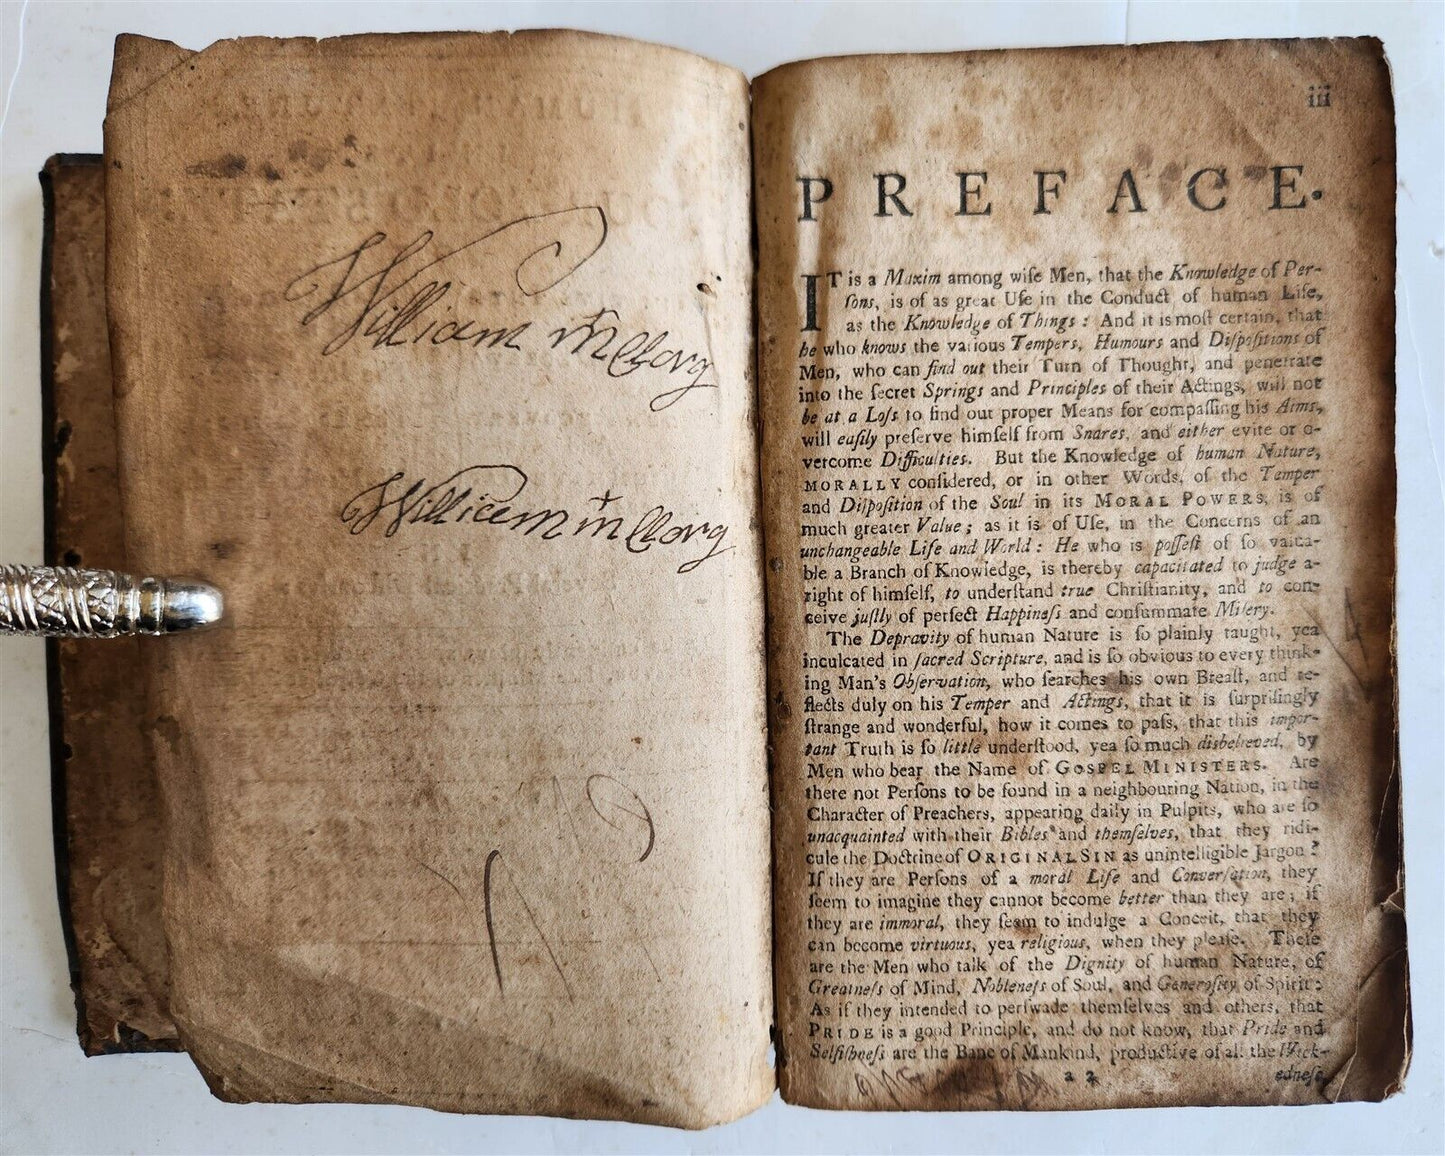 William
William
iii
PREFACE.
IT is a Maxim among wiſe Men, that the Knowledge of Per-
ſons, is of as great Uſe in the Conduct of human Life,
as the Knowledge of Things: And it is moſt certain, that
he who knows the various Tempers, Humours and Diſpoſitions of
Men, who can find out their Turn of Thought, and penetrate
into the ſecret Springs and Principles of their Actings, will not
be at a Loſs to find out proper Means for compaſſing his Aims,
will eaſily preſerve himſelf from Snares, and either evite or o-
vercome Difficulties. But the Knowledge of human Nature,
MORALLY conſidered, or in other Words, of the Temper
and Diſpoſition of the Soul in its MORAL POWERS, is of
much greater Value; as it is of Uſe, in the Concerns of an
unchangeable Life and World: He who is poſſeſt of ſo valua-
ble a Branch of Knowledge, is thereby capacitated to judge a-
right of himſelf, to underſtand true Chriſtianity, and to con-
ceive juſtly of perfect Happineſs and conſummate Miſery.
The Depravity of human Nature is ſo plainly taught, yea
inculcated in ſacred Scripture, and is ſo obvious to every think-
ing Man's Obſervation, who ſearches his own Breaſt, and re-
flects duly on his Temper and Actings, that it is ſurpriſingly
ſtrange and wonderful, how it comes to paſs, that this impor-
tant Truth is ſo little underſtood, yea ſo much disbelieved, by
Men who bear the Name of GOSPEL MINISTERS. Are
there not Perſons to be found in a neighbouring Nation, in the
Character of Preachers, appearing daily in Pulpits, who are ſo
unacquainted with their Bibles and themſelves, that they ridi-
cule the Doctrine of ORIGINAL SIN as unintelligible Jargon?
If they are Perſons of a moral Life and Converſation, they
ſeem to imagine they cannot become better than they are; if
they are immoral, they ſeem to indulge a Conceit, that they
can become virtuous, yea religious, when they pleaſe. Theſe
are the Men who talk of the Dignity of human Nature, of
Greatneſs of Mind, Nobleneſs of Soul, and Generoſity of Spirit:
As if they intended to perſwade themſelves and others, that
PRIDE is a good Principle, and do not know, that Pride and
Selfiſhneſs are the Bane of Mankind, productive of all the Wick-
a 2 edneſs